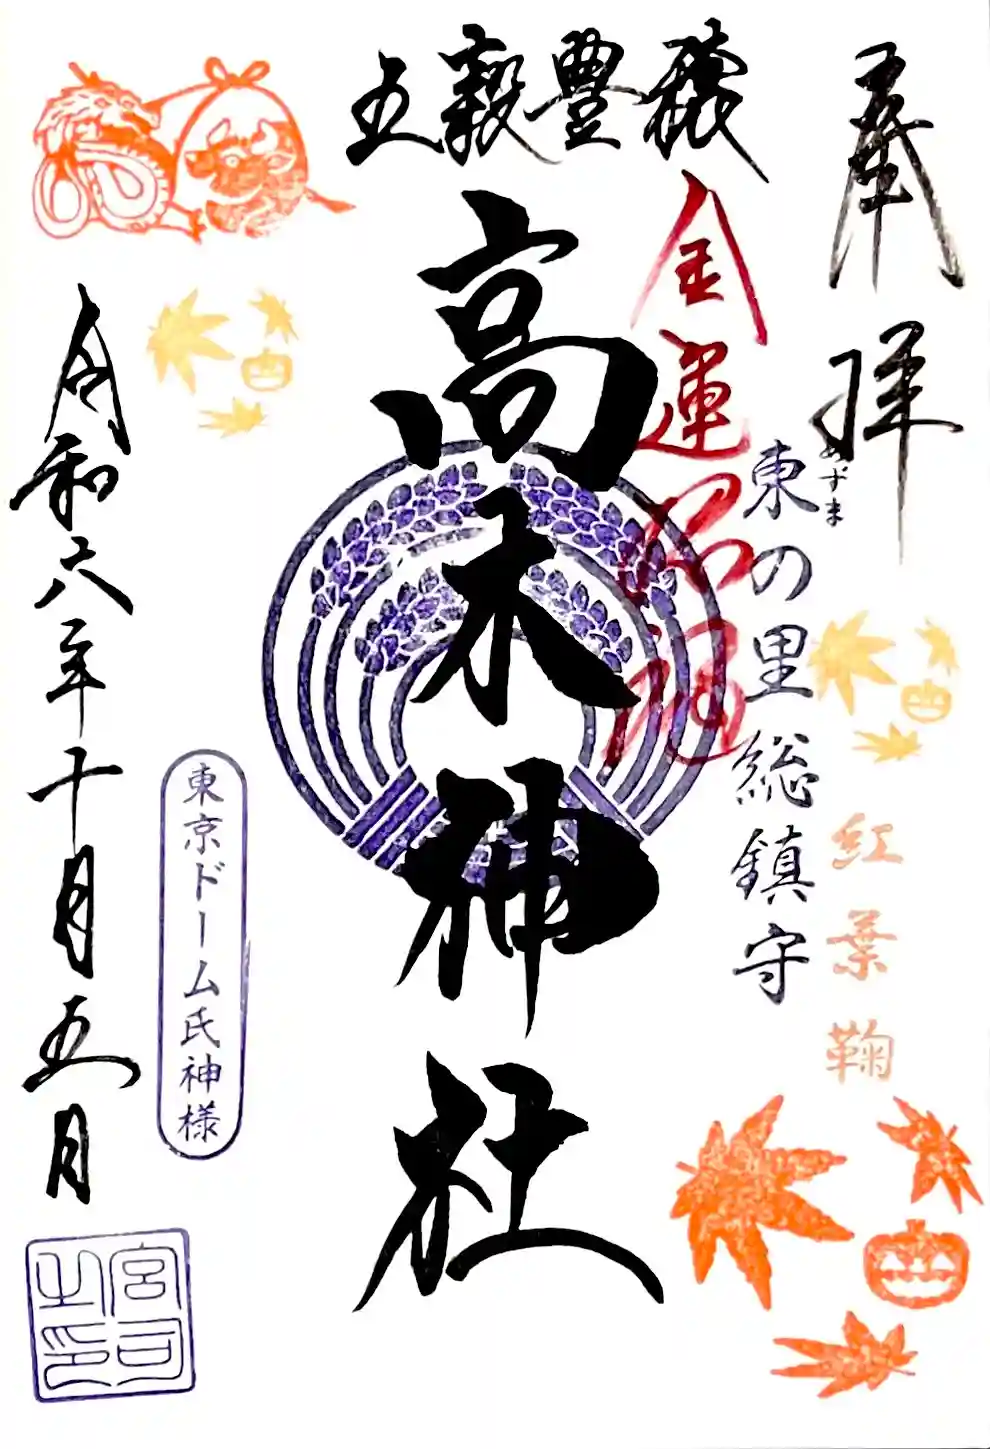 奉拝
五穀豊穣
金運招福
あずま
東の里総鎮守
紅葉鞠
高木神社
東京ドーム氏神様
令和六年十月五日
宮司之印